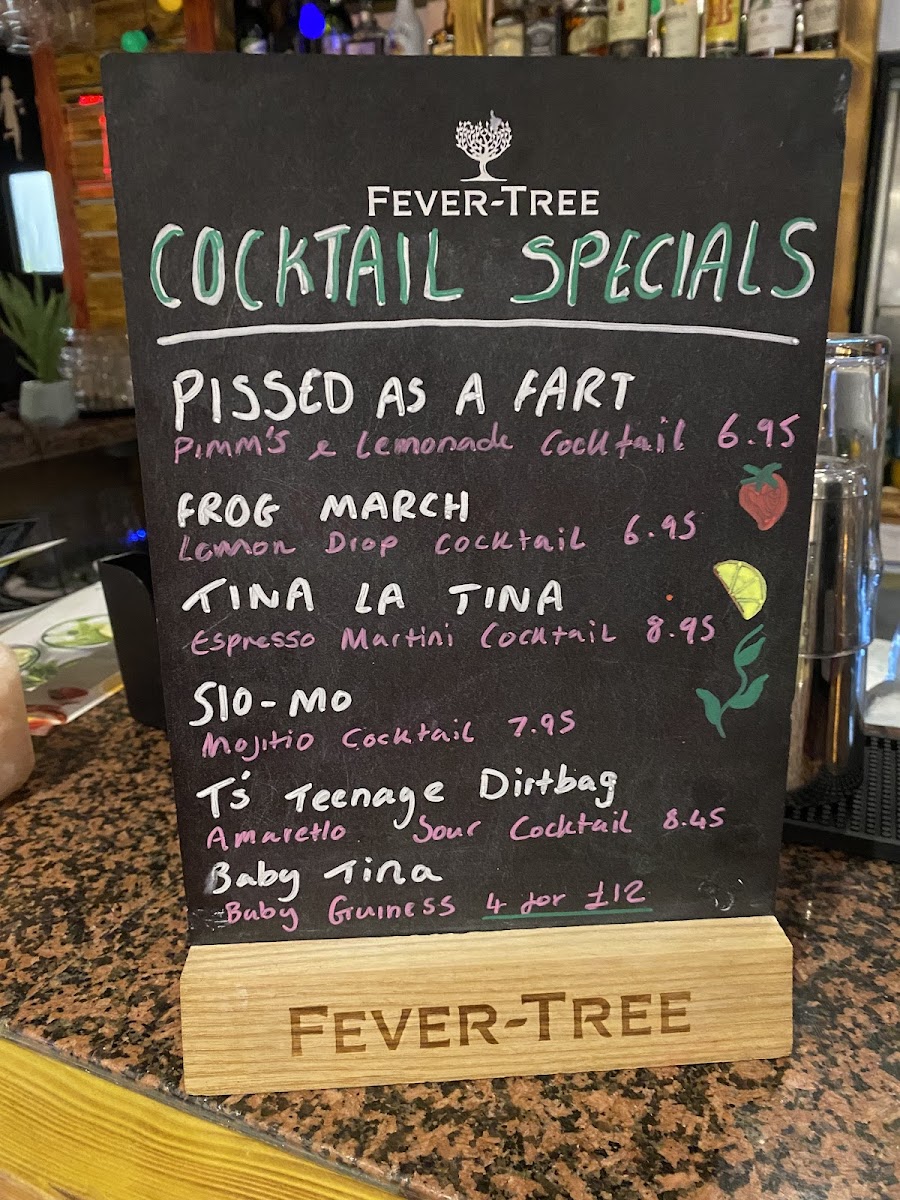 FEVER-TREE
COCKTAIL SPECIALS
PISSED AS A FART
Pimm's & Lemonade Cocktail 6.95
FROG MARCH
Lemon Drop cocktail 6.95
TINA LA TINA
Espresso Martini Cocktail 8.95
Slo-Mo
Mojitio Cocktail 7.95
T's Teenage Dirtbag
Amaretto Sour Cocktail 8.45
Baby Tina
Baby Guiness 4 for £12
FEVER-TREE